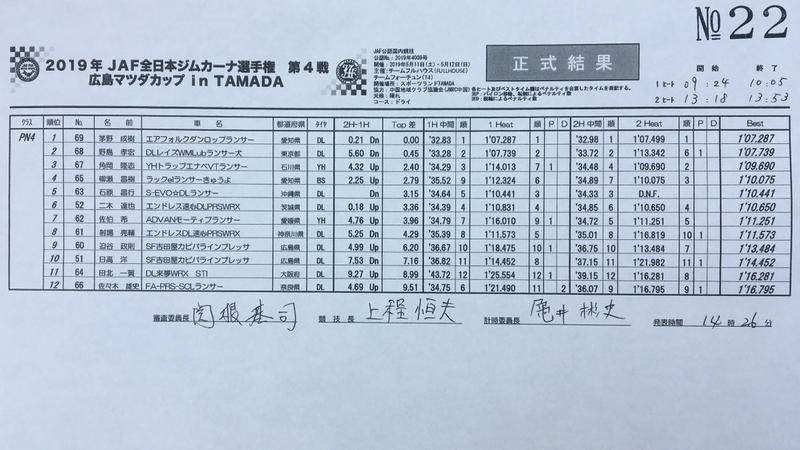 № 22
2019年 JAF全日本ジムカーナ選手権 第4戦
広島マツダカップ in TAMADA
JAF公認国内競技
公認No.：2019年4009号
開催：2019年5月11日(土)・5月12日(日)
主催：チームフルハウス(FULLHOUSE)
チームフォーチュン(T4)
会場：スポーツランドTAMADA
協力：中国地域クラブ協議会(JMRC中国)
天候：晴れ
コース：ドライ
正式結果
開始 終了
1ヒート 09：24 10：05
2ヒート 13：18 13：53
クラス 順位 No. 名前 車名 都道府県 タイヤ 2H-1H Top差 1H中間 順 1 Heat 順 P D 2H中間 順 2 Heat 順 P D Best
PN4 1 69 茅野 成樹 エアフォルクダンロップランサー 愛知県 DL 0.21 Dn 0.00 '32.83 1 1'07.287 1 '32.98 1 1'07.499 1 1'07.287
2 68 野島 孝宏 DLレイズWMLubランサー犬 東京都 DL 5.60 Dn 0.45 '33.28 2 1'07.739 2 '33.72 2 1'13.342 6 1 1'07.739
3 67 角岡 隆志 YHトラップエナペVTランサー 石川県 YH 4.32 Up 2.40 '34.29 3 1'14.013 7 1 '34.48 4 1'09.690 2 1'09.690
4 65 柳瀬 昌樹 ラックeiランサーきゅうよ 愛知県 BS 2.25 Up 2.79 '35.52 9 1'12.324 6 '34.89 7 1'10.075 3 1'10.075
5 63 石原 昌行 S-EVO☆DLランサー 沖縄県 DL Dn 3.15 '34.64 5 1'10.441 3 '34.33 3 D.N.F. 1'10.441
6 52 二木 達也 エンドレス速心DLPRSWRX 茨城県 DL 0.18 Up 3.36 '34.39 4 1'10.831 4 '34.85 6 1'10.650 4 1'10.650
7 62 佐伯 希 ADVANモーティブランサー 愛媛県 YH 4.76 Up 3.96 '34.79 7 1'16.010 9 1 '34.52 5 1'11.251 5 1'11.251
8 61 射場 亮輔 エンドレスDL速心PRSWRX 神奈川県 DL 5.25 Dn 4.29 '35.39 8 1'11.573 5 '35.01 8 1'16.819 10 1 1'11.573
9 60 迫谷 政則 SF吉田屋カピバラインプレッサ 広島県 DL 4.99 Up 6.20 '36.67 10 1'18.475 10 1 '36.75 10 1'13.484 7 1'13.484
10 51 日高 洋 SF吉田屋カピバラインプレッサ 広島県 DL 7.53 Dn 7.16 '36.82 11 1'14.452 8 '37.15 11 1'21.982 11 1 1'14.452
11 64 田北 一賀 DL来夢WRX STI 大阪府 DL 9.27 Up 8.99 '43.72 12 1'25.554 12 1 '39.15 12 1'16.281 8 1'16.281
12 66 佐々木 雄史 FA-PRS-SCLランサー 奈良県 DL 4.69 Up 9.51 '34.75 6 1'21.490 11 2 '36.07 9 1'16.795 9 1 1'16.795
審査委員長 関根基司 競技長 上程恒夫 計時委員長 亀井彬史 発表時間 14時26分